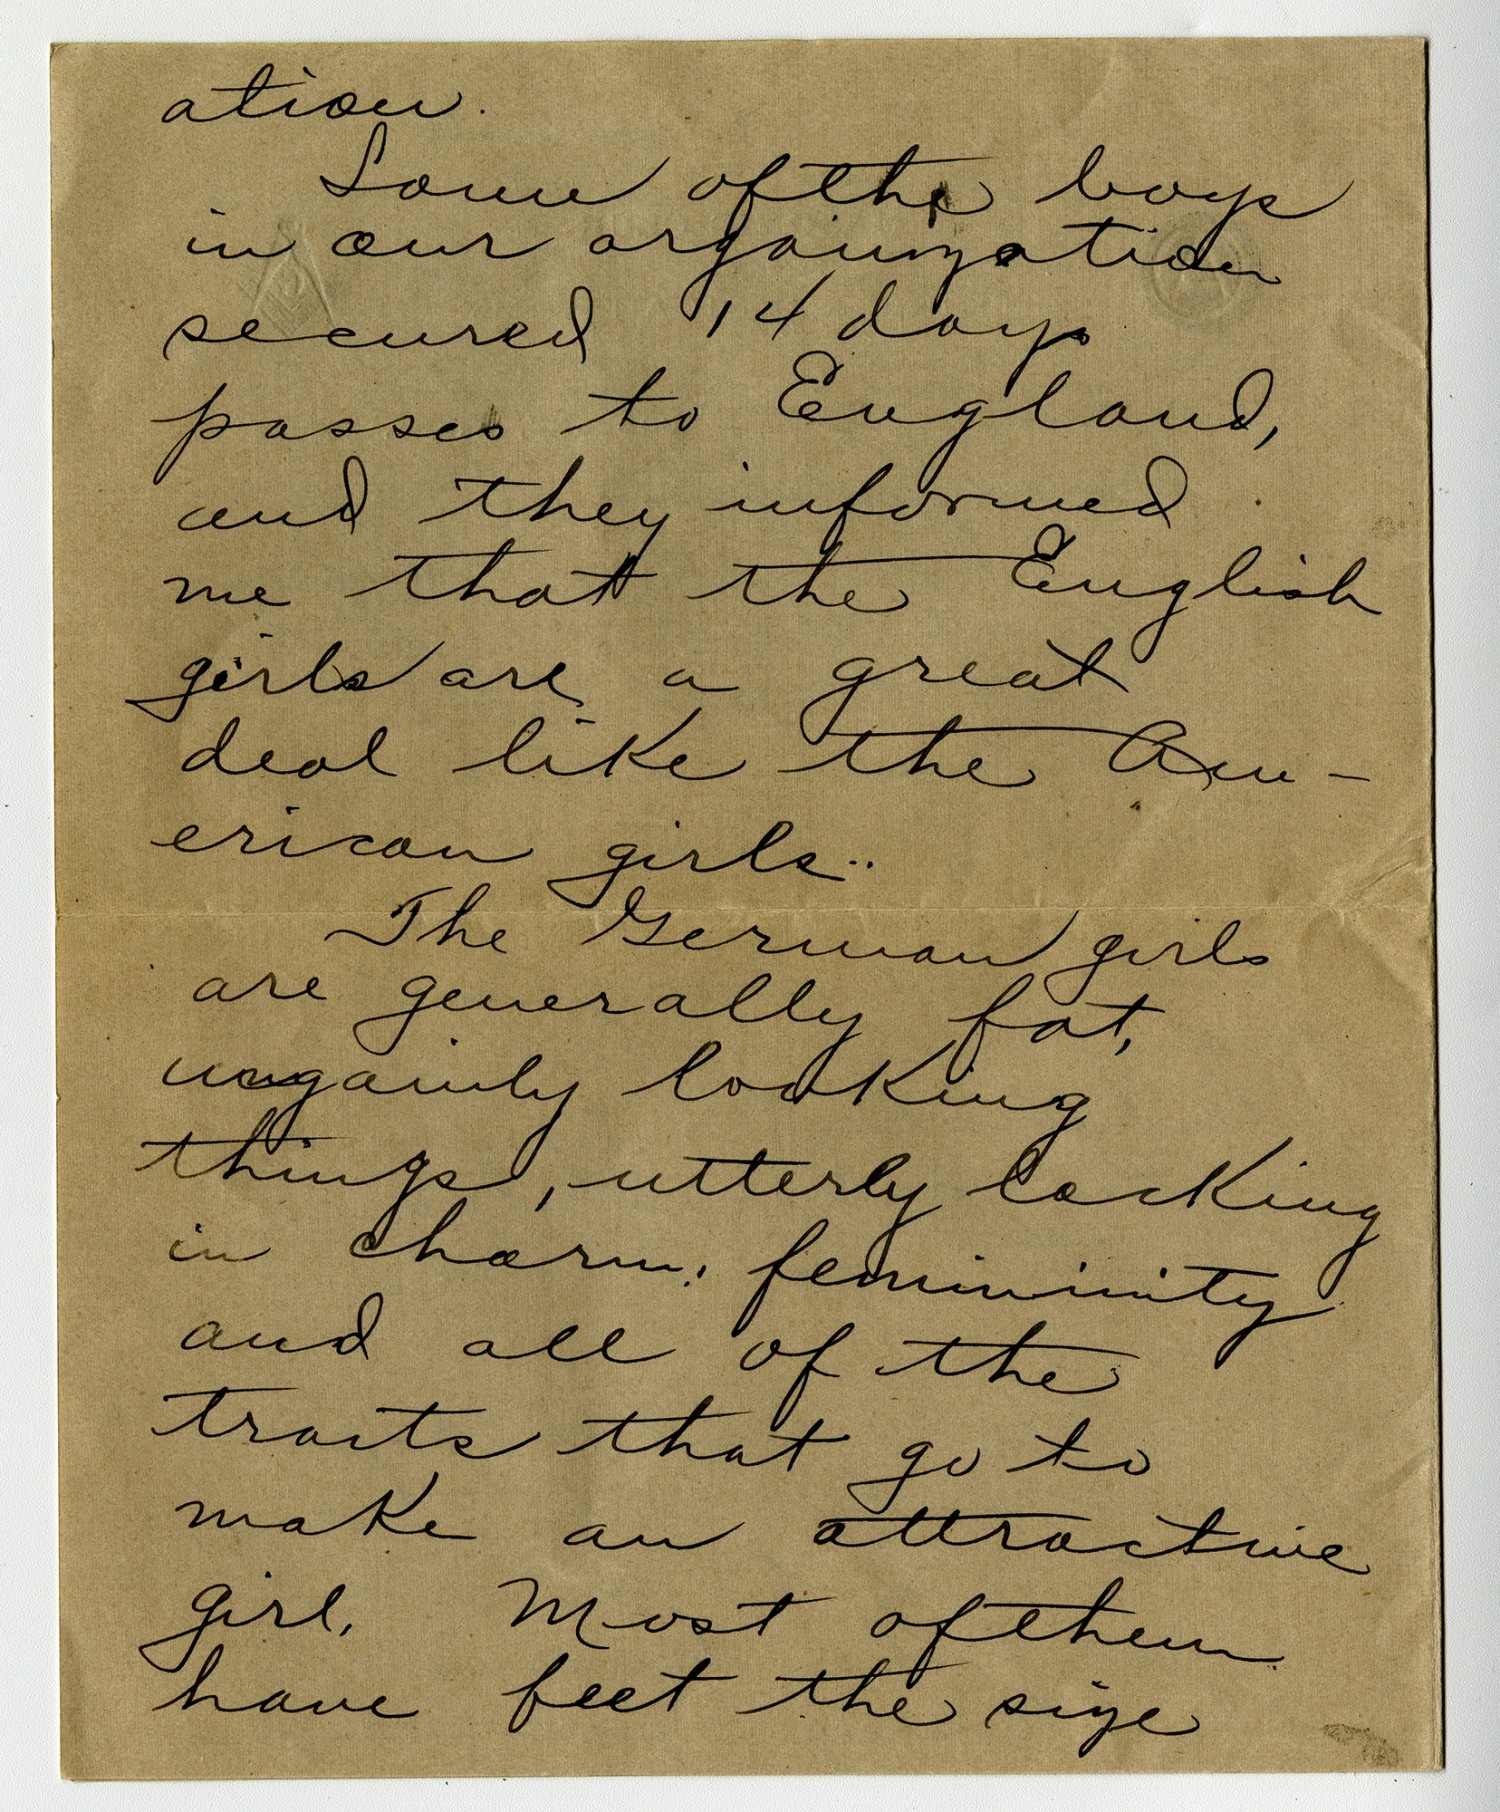 ation.
Some of the boys
in our organization
secured 14 days
passes to England,
and they informed
me that the English
girls are a great
deal like the Am-
erican girls..
The German girls
are generally fat,
ungainly looking
things, utterly lacking
in charm, femininity
and all of the
traits that go to
make an attractive
girl. Most of them
have feet the size